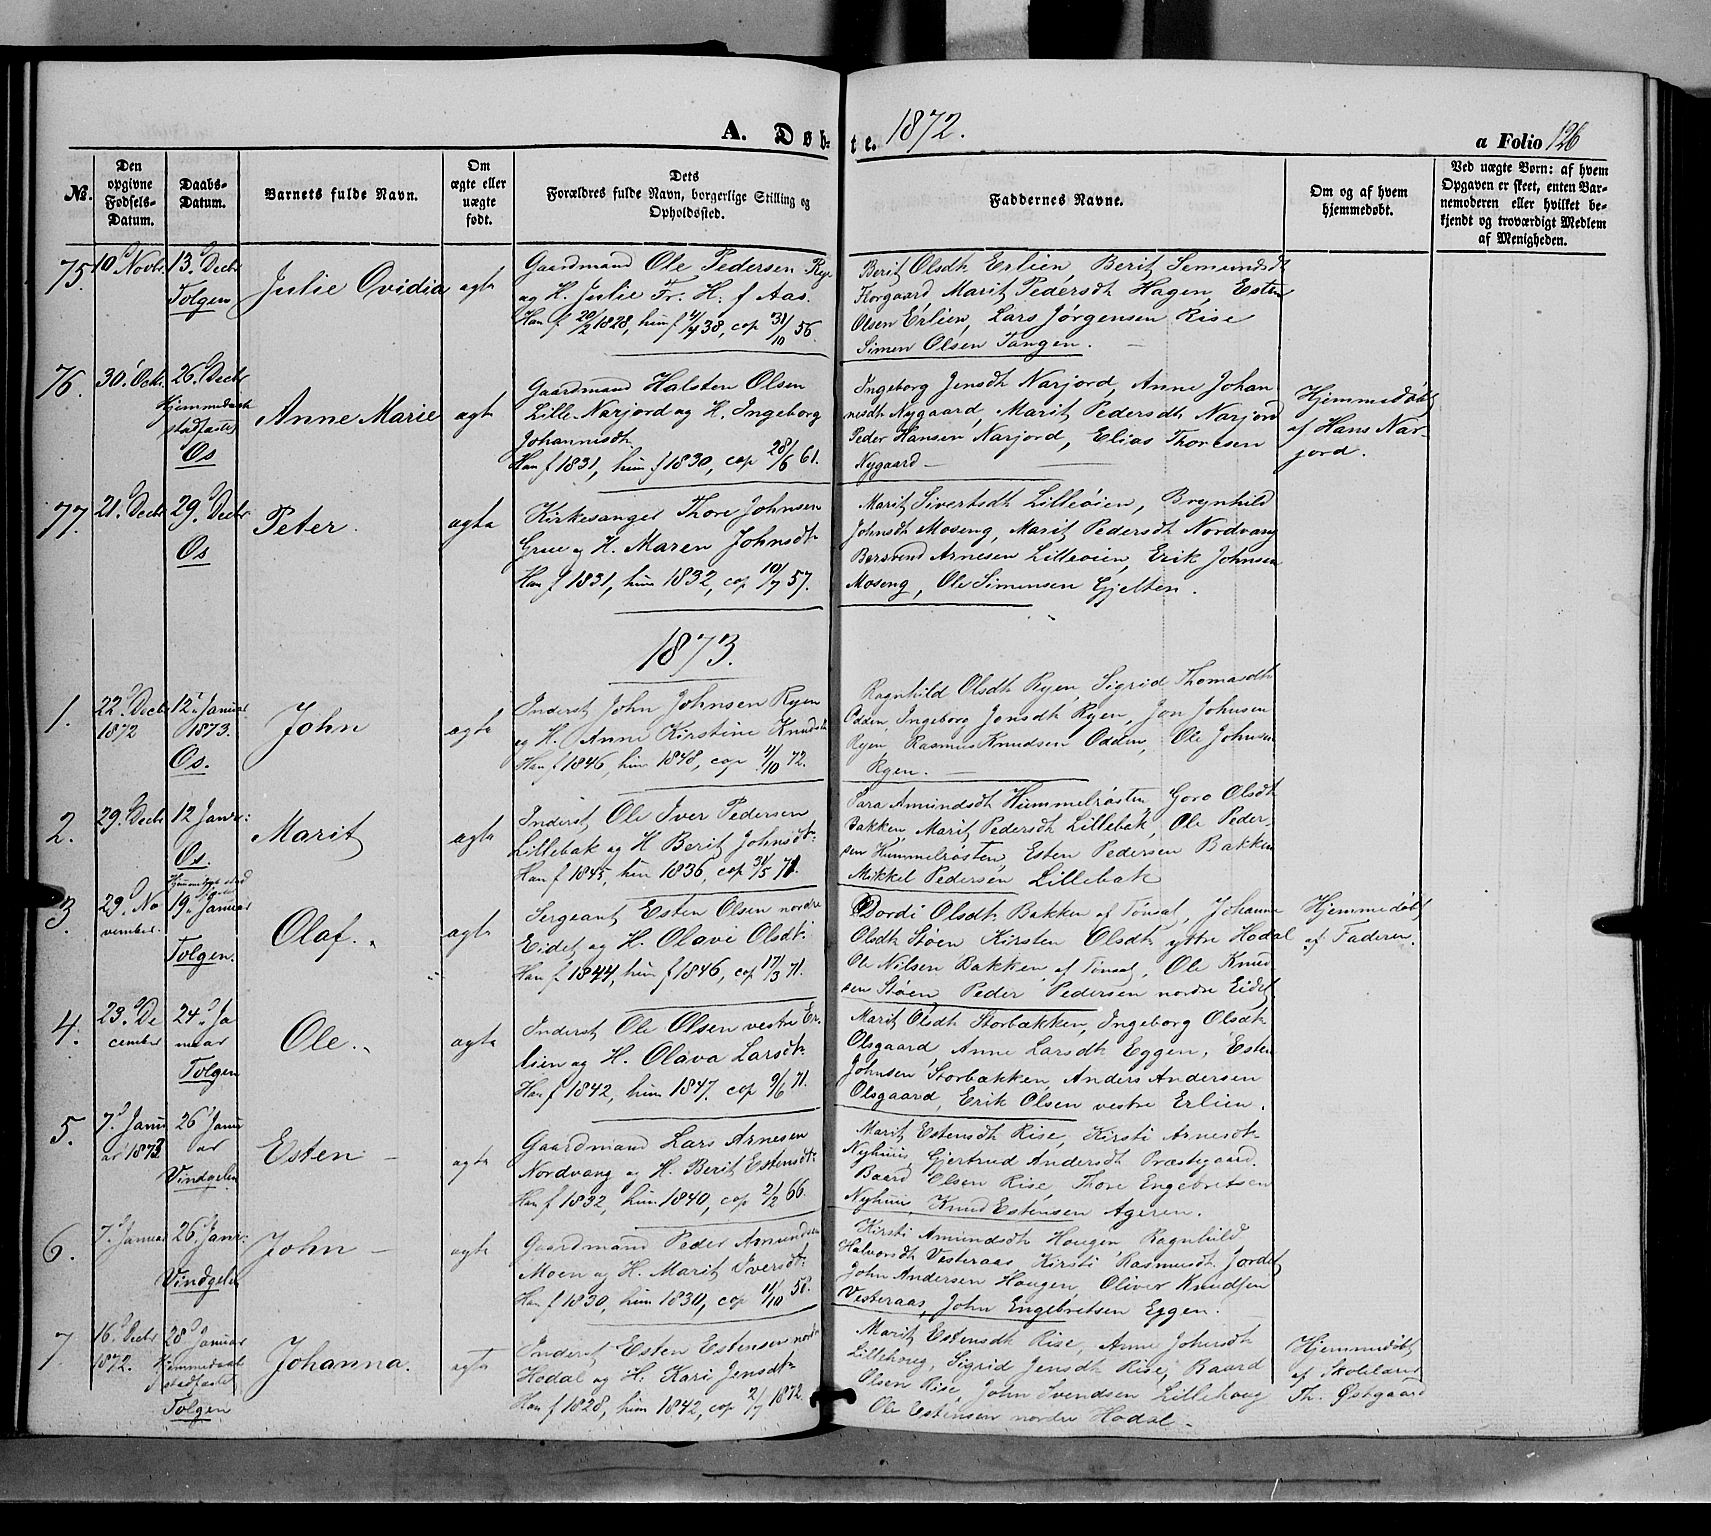 A. Døbte. 1872.
a Folio 126
№.
Den opgivne Fødsels-Datum.
Daabs-Datum.
Barnets fulde Navn.
Om ægte eller uægte født.
Dets Forældres fulde Navn, borgerlige Stilling og Opholdssted.
Faddernes Navne.
Om og af hvem hjemmedøbt.
Ved uægte Børn: af hvem Opgaven er skeet, enten Barnemoderen eller hvilket bekjendt og troværdigt Medlem af Menigheden.
75. 10. Novbr. 13. Decbr Tolgen
Julie Ovidia
ægte
Gaardmand Ole Pedersen Rye
og H. Julie Fr. H. f Aas.
Han f 20/2 1828, hun f 4/4 38, cop 31/10 56.
Berit Olsdtr Erlien, Berit Semundsdt
Korgaard, Marit Pedersdtr Hagen, Esten
Olsen Erlien, Lars Jørgensen Rise
Simen Olsen Tangen.
76. 30. Octr. 26. Decbr Hjemmedaab stadfæstet Os
Anne Marie
ægte
Gaardmand Halsten Olsen
Lille-Narjord og H. Ingeborg
Johannisdtr
Han f 1831, hun f 1830, cop 28/6 61.
Ingeborg Jensdtr Narjord, Anne Johan
nesdtr Nygaard, Marit Pedersdtr Narjord
Peder Hansen Narjord, Elias Thoresen
Nygaard
Hjemmedøbt
af Hans Nar-
jord.
77. 21. Decbr 29. Decbr Os
Peter.
ægte
Kirkesanger Thore Johnsen
Grue og H. Maren Johnsdtr
Han f 1831, hun 1832, cop 10/7 57.
Marit Sivertsdtr Lilleøien, Brynhild
Johnsdtr Moseng, Marit Pedersdtr Nordvang
Bersvend Arnesen Lilleøien, Erik Johnsen
Moseng, Ole Simensen Gjelten.
1873.
1. 22. Decbr 1872 12. Januar 1873. Os.
John
ægte
Inderst John Johnsen Ryen
og H. Anne Kirstine Knudsdtr
Han f 1846, hun 1848, cop 11/10 72.
Ragnhild Olsdtr Ryen, Sigrid Thomasdtr
Odden, Ingeborg Jonsdtr Ryen, Jon Johnsen
Ryen, Rasmus Knudsen Odden, Ole Johnsen
Ryen.
2. 29. Decbr 12 Januar: Os.
Marit
ægte
Inderst Ole Iver Pedersen
Lillebæk og H Berit Johnsdtr:
Han f 1845, hun 1836, cop 31/5 71.
Amundsdtr Hummelrøsten, Goro Olsdtr
Bakken, Marit Pedersdtr Lillebæk, Ole Peder-
sen Hummelrøsten, Esten Pedersen Bakken
Mikkel Pedersen Lillebæk
3. 29. November. 19. Januar Tolgen.
Olaf.
ægte
Sergeant Esten Olsen nordre
Eidet og H. Olavi Olsdtr:
Han f 1844, hun f 1846, cop 17/3 71.
Dordi Olsdtr Bakken af Tønset, Johanne
Olsdtr Støen Kirsten Olsdtr yttre Hodal
Ole Nilsen Bakken af Tønset, Ole Knud
sen Støen Peder Pedersen nordre Eidet
Hjemmedøbt
af Faderen.
4. 23. December 24. Januar Tolgen
Ole.
ægte
Inderst Ole Olsen vestre Er-
lien og H. Olava Larsdtr
Han f 1842, hun 1847. cop 9/6 71.
Marit Olsdtr Storbækken, Ingeborg Olsdtr
Olsgaard Anne Larsdtr Eggen, Esten
Johnsen Storbækken, Anders Andersen
Olsgaard, Erik Olsen vestre Erlien.
5. 7. Januar 1873 26 Januar Vindgelen
Esten
ægte
Gaardmand Lars Arnesen
Nordvang og H. Berit Estensdtr
Han f 1832, hun 1840, cop 2/2 66.
Marit Estensdtr Rise, Kirsti Arnesdtr
Nyhuus, Gjertrud Andersdtr Præstegaard.
Baard Olsen Rise, Thore Engebretsen
Nyhuus, Knud Estensen Ageren.
6. 7. Januar 26. Januar Vindgelen
John
ægte
Gaardmand Peder Amundsen
Moen og H. Marit Iversdtr
Han f 1830, hun 1830, cop 11/10 58.
Kirsti Amundsdtr Hougen Ragnhild
Halvorsdtr Vesteraas, Kirsti Rasmusdtr Jordet
John Andersen Hougen, Oliver Knudsen
Vesteraas, John Engebretsen Eggen.
7. 16. Decbr 1872. 28. Januar Hjemmedaab stadfæstet Tolgen
Johanna.
ægte
Inderst Esten Estensen nordre
Hodal og H. Kari Jensdtr
Han f 1828, hun 1842, cop 2/7 1872.
Marit Estensdtr Rise, Anne Johnsdtr
Lillehoug, Sigrid Jensdtr Rise, Baard
Olsen Rise, John Svendsen Lillehoug
Ole Estensen nordre Hodal.
Hjemmedøbt
af Skolelærer
Th. Østgaard